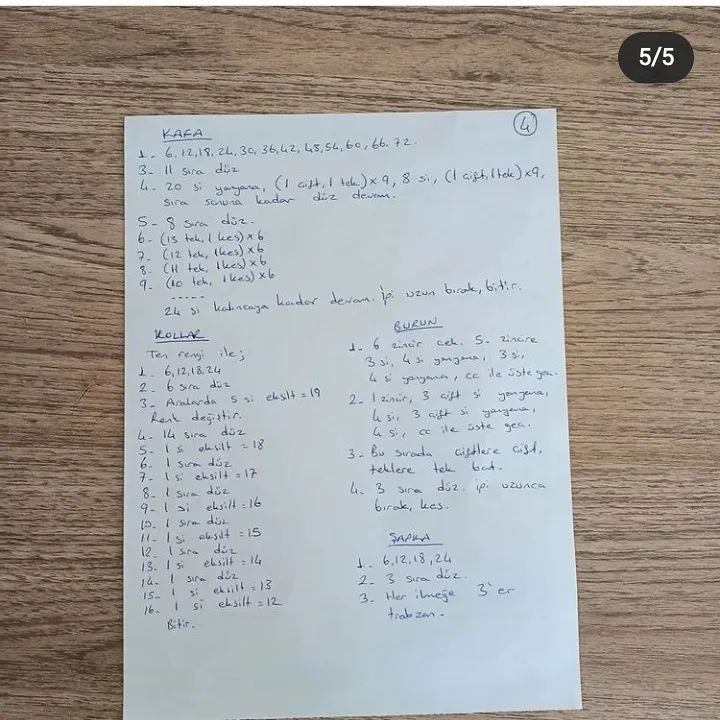 5/5
4
KAFA
1- 6,12,18,24,30,36,42,48,54,60,66,72.
3- 11 sıra düz
4- 20 si yanyana, (1 çift, 1 tek)x9, 8 si, (1 çift, 1 tek)x9,
sıra sonuna kadar düz devam.
5- 8 sıra düz.
6- (13 tek, 1 kes)x6
7- (12 tek, 1kes)x6
8- (11 tek, 1kes)x6
9- (10 tek, 1kes)x6
-----
24 si kalıncaya kadar devam. İpi uzun bırak, bitir.
KOLLAR
Ten rengi ile;
1- 6,12,18,24
2- 6 sıra düz
3- Aralarda 5 si eksilt = 19
Renk değiştir.
4- 14 sıra düz
5- 1 si eksilt = 18
6- 1 sıra düz
7- 1 si eksilt = 17
8- 1 sıra düz
9- 1 si eksilt = 16
10- 1 sıra düz
11- 1 si eksilt = 15
12- 1 sıra düz
13- 1 si eksilt = 14
14- 1 sıra düz
15- 1 si eksilt = 13
16- 1 si eksilt = 12
Bitir.
BURUN
1- 6 zincir çek. 5. zincire
3 si, 4 si yanyana, 3 si,
4 si yanyana, cc ile üste geç.
2- 1 zincir, 3 çift si yanyana,
4 si, 3 çift si yanyana,
4 si, cc ile üste geç.
3- Bu sırada çiftlere çift,
teklere tek bat.
4- 3 sıra düz. ipi uzunca
bırak, kes.
ŞAPKA
1- 6,12,18,24
2- 3 sıra düz.
3. Her ilmeğe 3'er
trabzan.